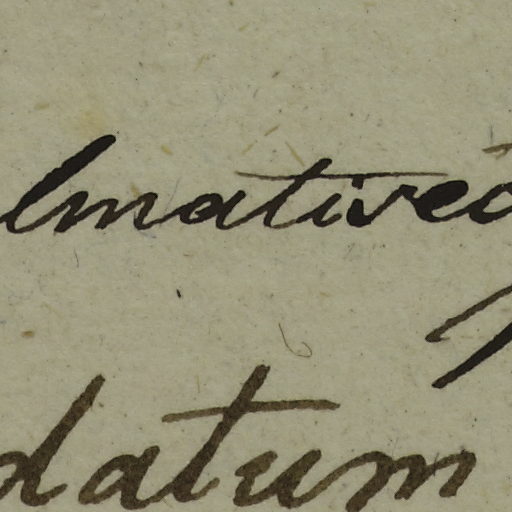 lmatived
datum